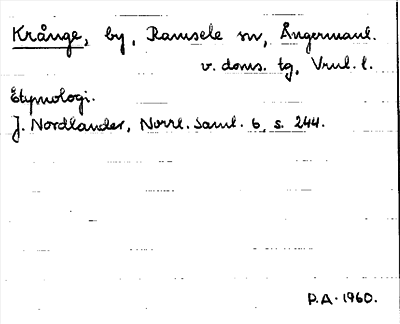 Krånge, by, Ramsele sn, Ångermanl.
v. doms. tg, Vnul. l.
Etymologi.
J. Nordlander, Norrl. Saml. 6, s. 244.
P.A. 1960.